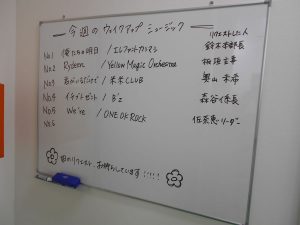 今週のウェイクアップミュージック
リクエストした人
No.1 俺たちの明日 / エレファントカシマシ 鈴木本部長
No.2 Rydeen / Yellow Magic Orchestra 板垣主事
No.3 君がいるだけで / 米米CLUB 奥山
No.4 イチブトゼンブ / B'z 森谷係長
No.5 We're / ONE OK ROCK 佐藤恵リーダー
No.6
朝のリクエスト、お待ちしています!!!!!